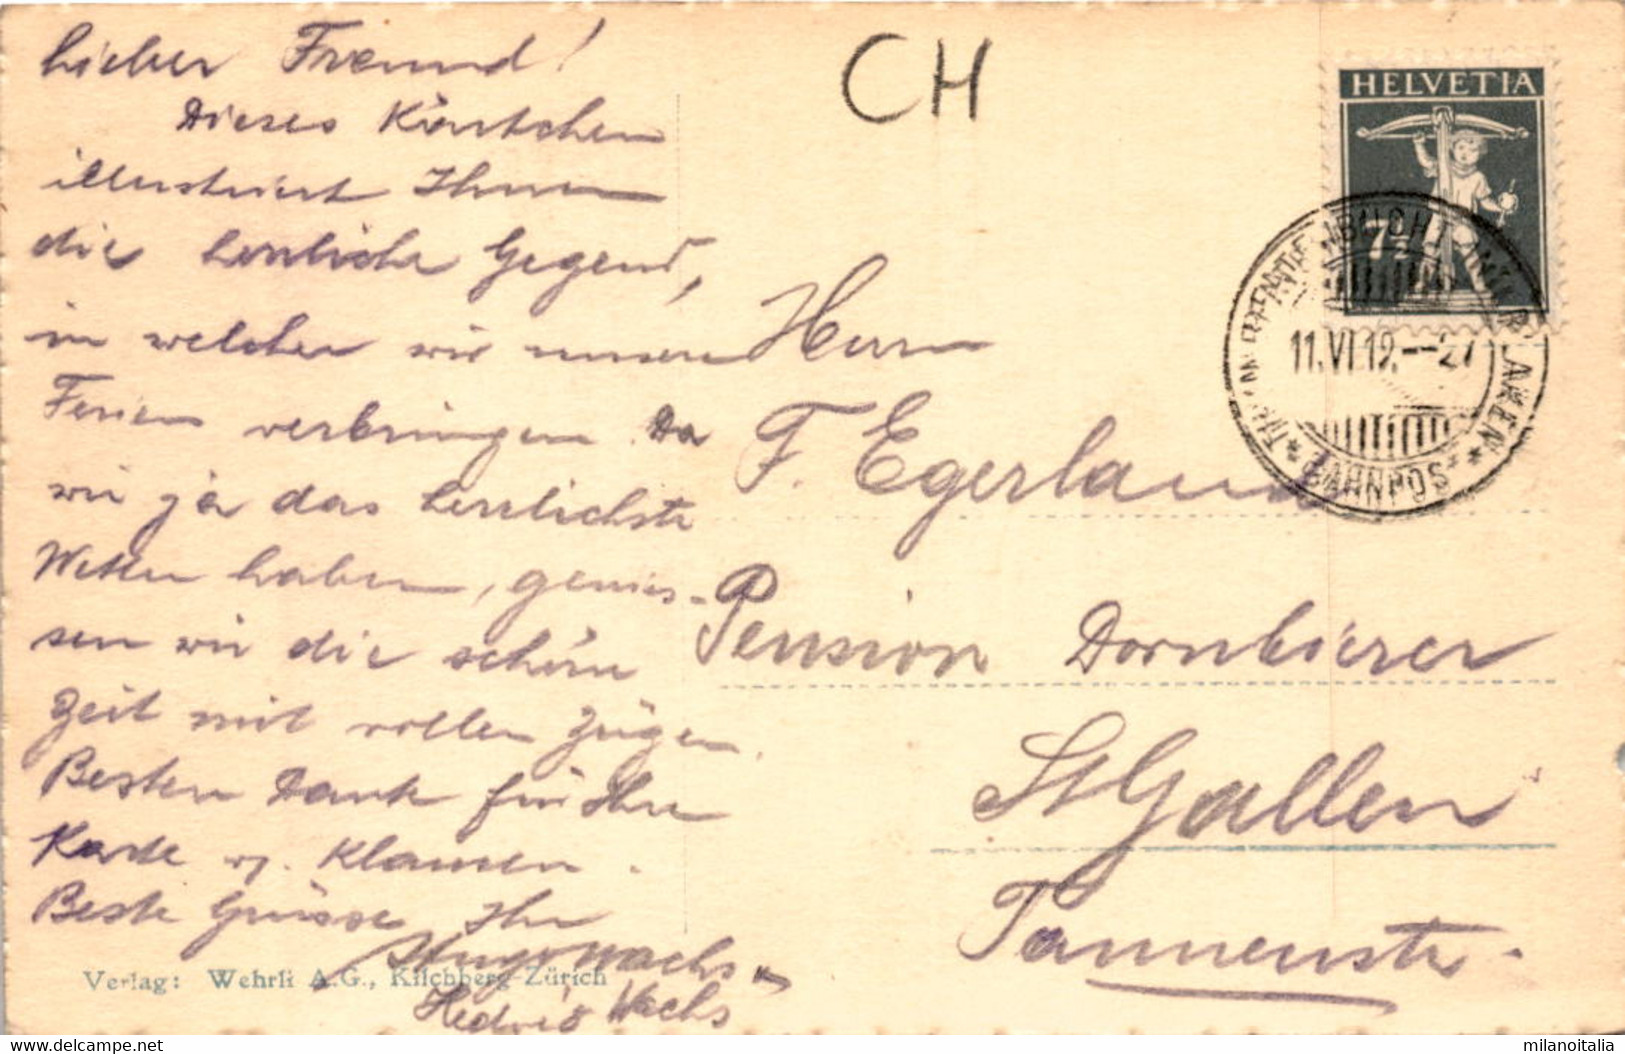 Lieber Freund!
Dieses Kärtchen
illustriert Ihnen
die herrliche Gegend,
in welcher wir unsere
Ferien verbringen. Da
wir ja das herrlichste
Wetter haben, genies-
sen wir die schöne
Zeit mit vollen Zügen.
Besten Dank für Ihre
Karte v. Klausen.
Beste Grüsse Ihr
Hugo Wachs
Hedwig Wachs
Verlag: Wehrli A.G., Kilchberg-Zürich
CH
HELVETIA
7½
INTERLAKEN
11.VI 19.--27
BAHNPOST
Herrn
F. Egerland
Pension Dornbierer
St Gallen
Tannenstr.
milanoitalia